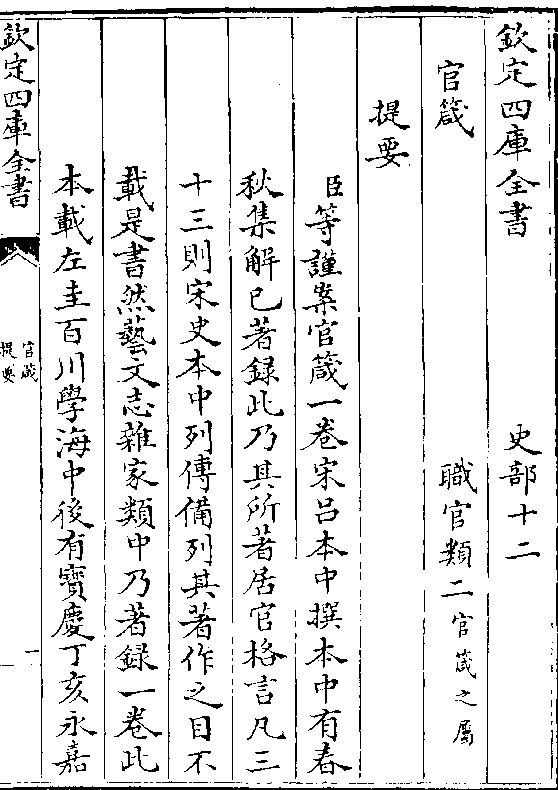 欽定四庫全書　史部十二
官箴　職官類二官箴之屬
提要
臣等謹案官箴一卷宋呂本中撰本中有春
秋集解已著録此乃其所著居官格言凡三
十三則宋史本中列傳備列其著作之目不
載是書然藝文志雜家類中乃著録一卷此
本載左圭百川學海中後有寶慶丁亥永嘉
欽定四庫全書
官箴
提要
一